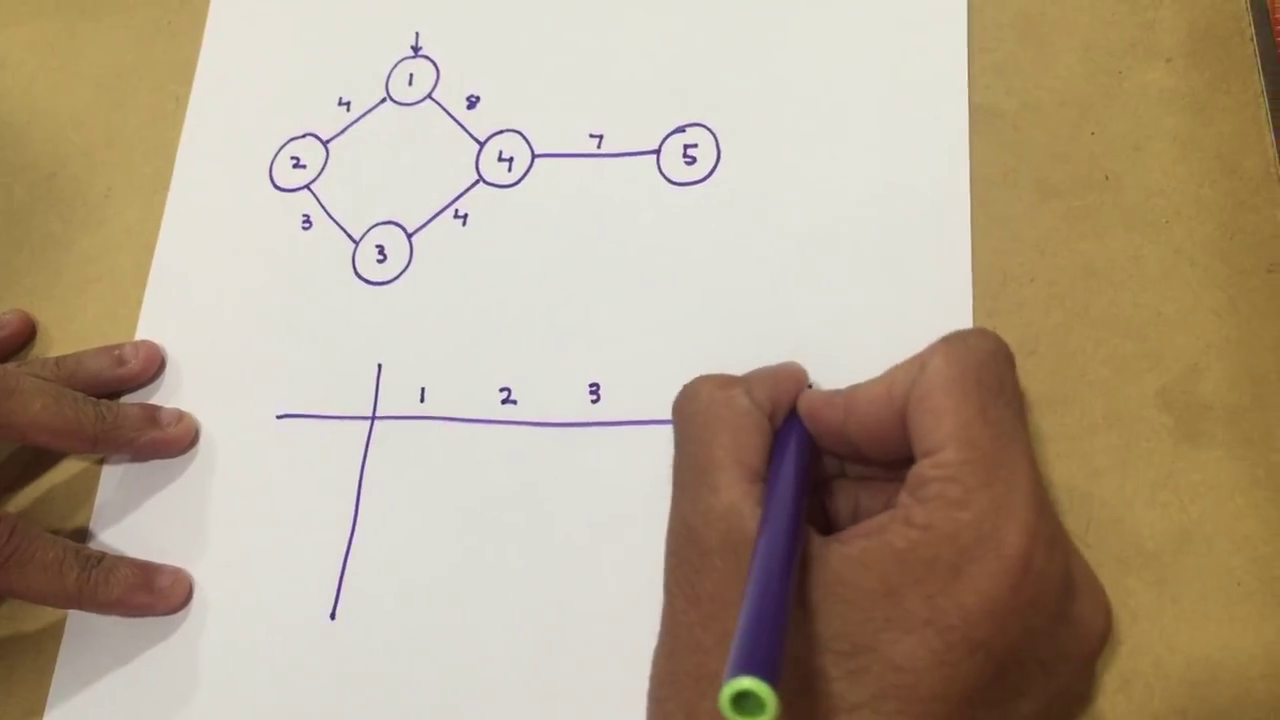 1
4 8
2 4 7 5
3 4
3
1 2 3